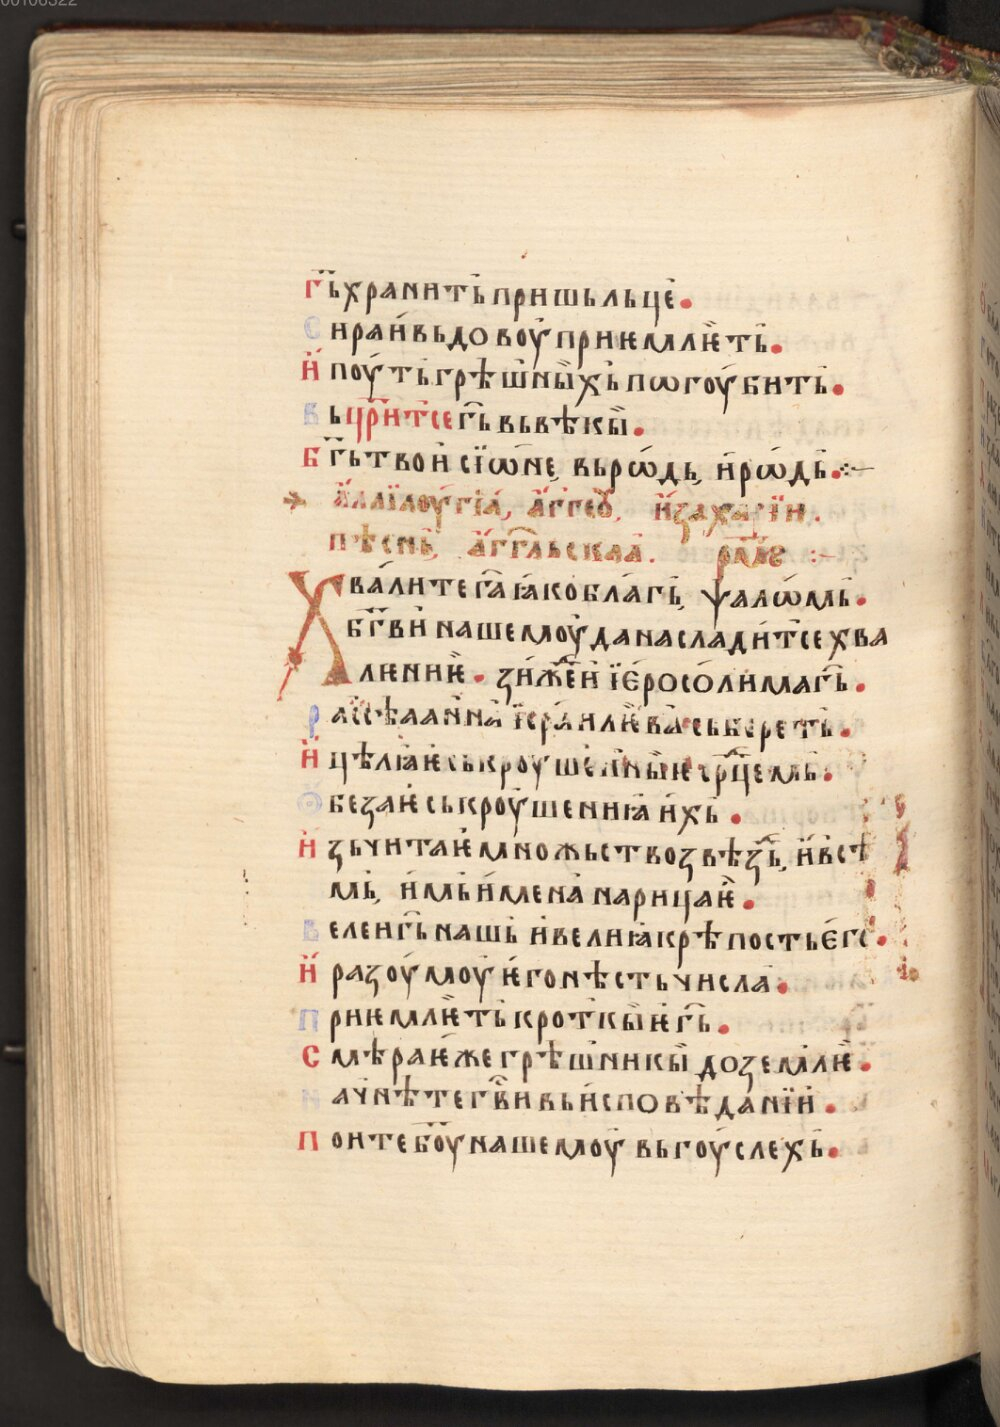 00106322
Гь҃ хранить пришьльце.
Сираи вьдовоу приѥмлѥть.
И поуть грѣшныхь пѡгоубить.
Вьцр҃итсе гь҃ вь вѣкы.
Бг҃ь твои сїѡне, вь рѡдь, и рѡдь
алліилоугїа, аггеѡ, и захарїи.
пѣснь, агг҃льскаа. рм҃ѕ
Хвалите га҃ ꙗко благь, ѱалѡмь.
бг҃ви нашемоу да насладитсе хва
лѥниѥ. зиждеи їеросолима гь҃.
расѣаанна їсраилѥва сьбереть.
Ицѣлꙗѥ скроушенныѥ ср҃цемь.
Ѡбезаѥ скроушениꙗ ихь.
И зьчитаѥ множьство звѣздь, и всѣ
мь, имь имена нарицаѥ.
Велеи гь҃ нашь и велиꙗ крѣпость его.
И разоумоу ѥго нѣсть числа.
Приѥмлѥть кроткыѥ гь҃.
Смѣраѥ же грѣшникы до землѥ.
Начнѣте гв҃и вь исповѣданїи.
Поите бо҃у нашемоу вь гоуслехь.